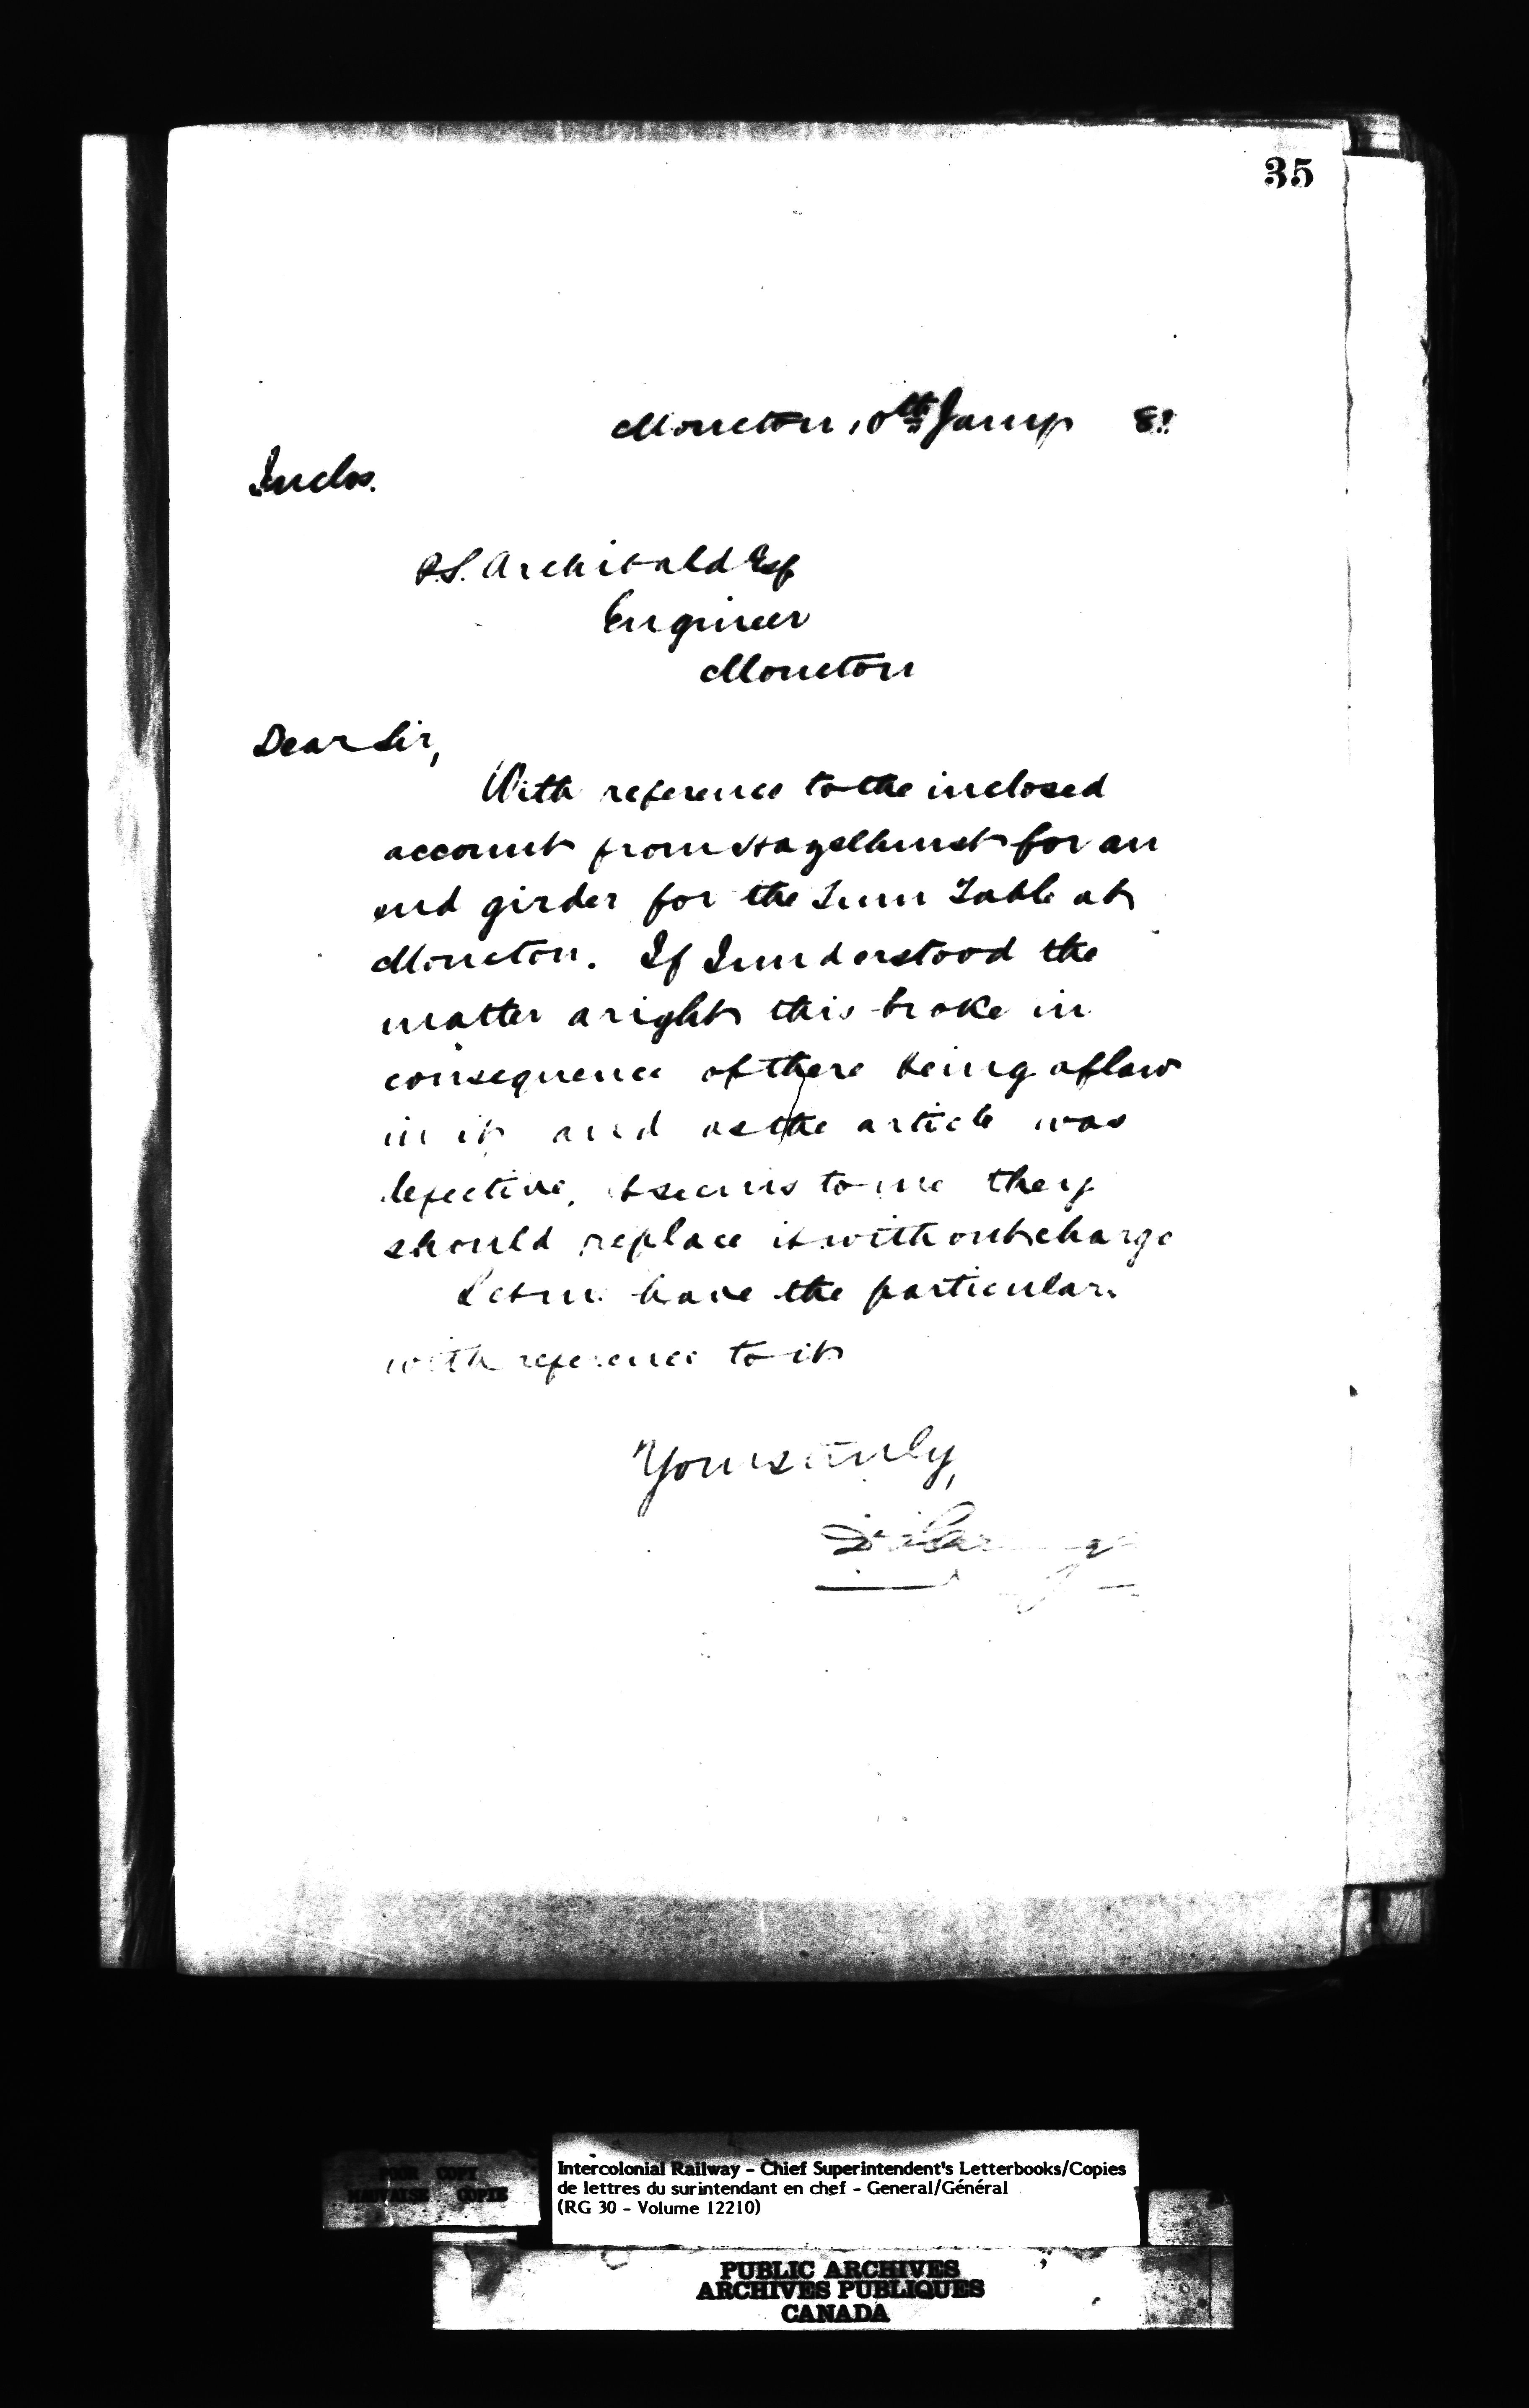 35
Moncton, 10th Jany 8
Inclos.
P.S. Archibald Esq
Engineer
Moncton
Dear Sir,
With reference to the inclosed
account from Hazelhurst for an
end girder for the Turn Table at
Moncton. If I understood the
matter aright this broke in
consequence of there being a flaw
in it and as the article was
defective, it seems to me they
should replace it without charge
Let me have the particulars
with reference to it
Yours truly,
POOR COPY
MAUVAISE COPIE
Intercolonial Railway - Chief Superintendent's Letterbooks/Copies
de lettres du surintendant en chef - General/Général
(RG 30 - Volume 12210)
PUBLIC ARCHIVES
ARCHIVES PUBLIQUES
CANADA